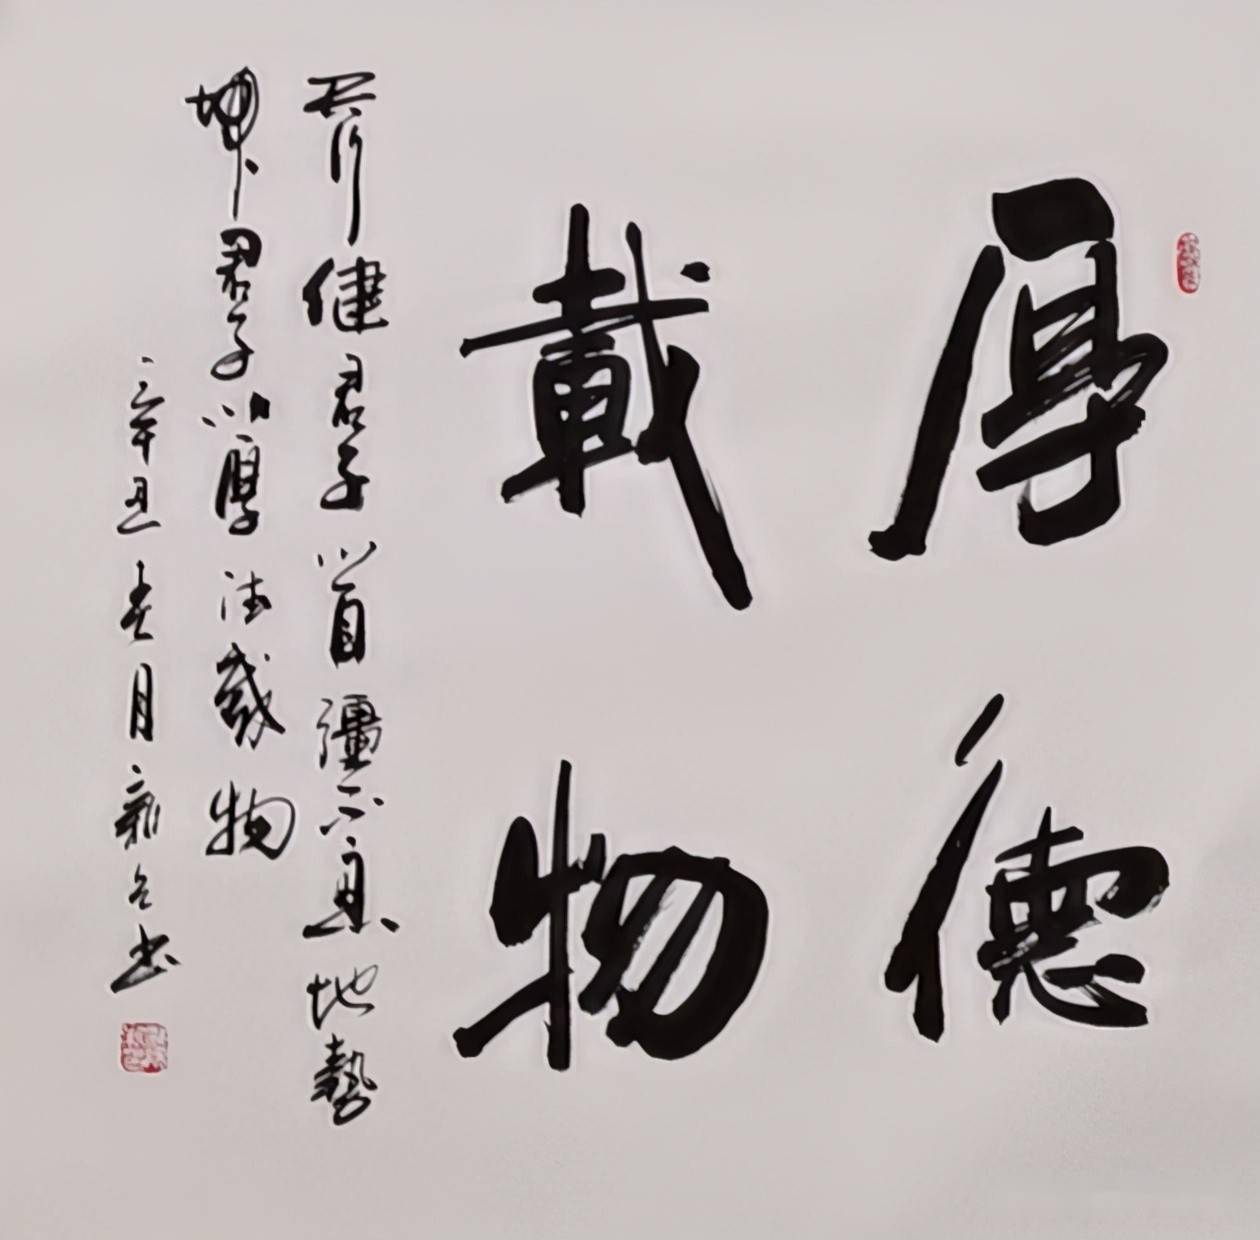 厚德
載物
天行健君子以自彊不息地勢
坤君子以厚德載物
辛丑春月新書